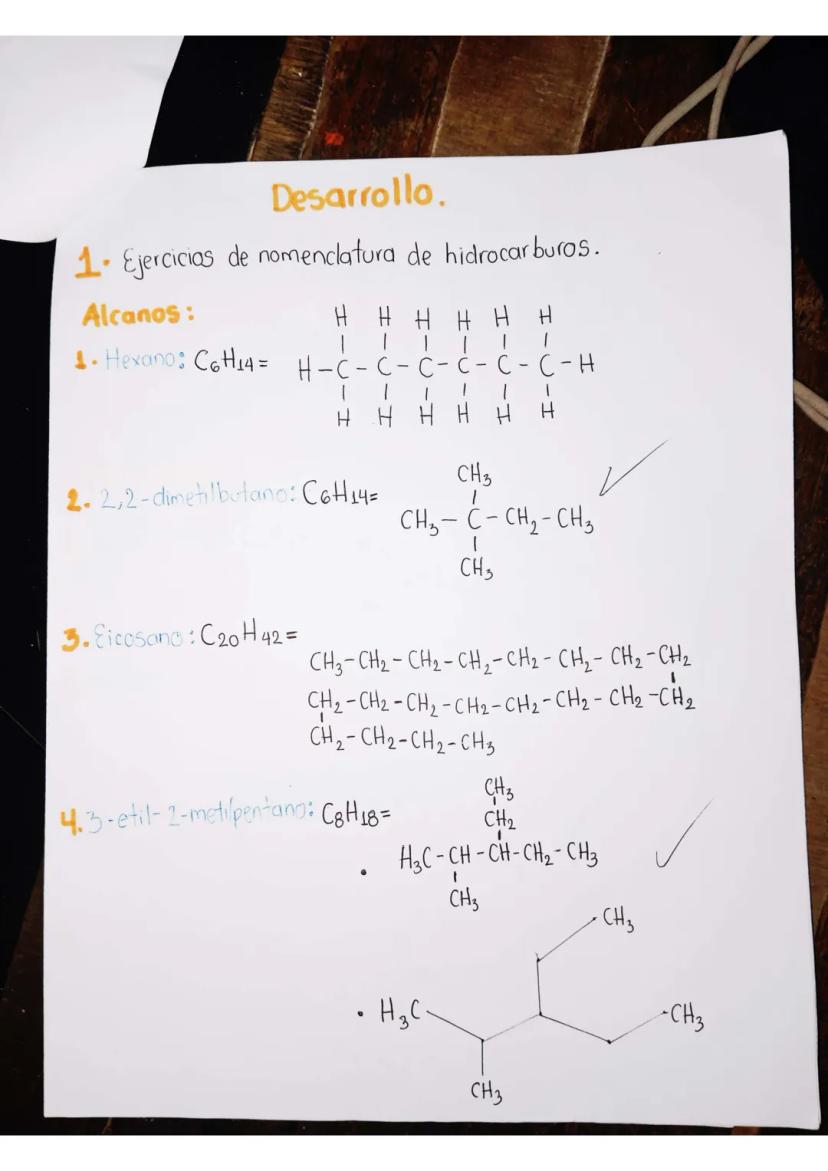 Desarrollo.
1. Ejercicios de nomenclatura de hidrocarburos.
Alcanos:
H H H H H H
1. Hexano: C6H14= H-C-C-C-C-C-C-H
H H H H H H
CH3
2. 2,2-dimetilbutano: C6H14=
CH3-C-CH2-CH3
CH3
3. Eicosano: C20H42=
CH3-CH2-CH2-CH2-CH2-CH2-CH2-CH2
CH2-CH2-CH2-CH2-CH2-CH2-CH2-CH2
CH2-CH2-CH2-CH3
CH3
4. 3-etil-2-metilpentano: C8H18= CH2
H3C-CH-CH-CH2-CH3
CH3
CH3
H3C CH3
CH3